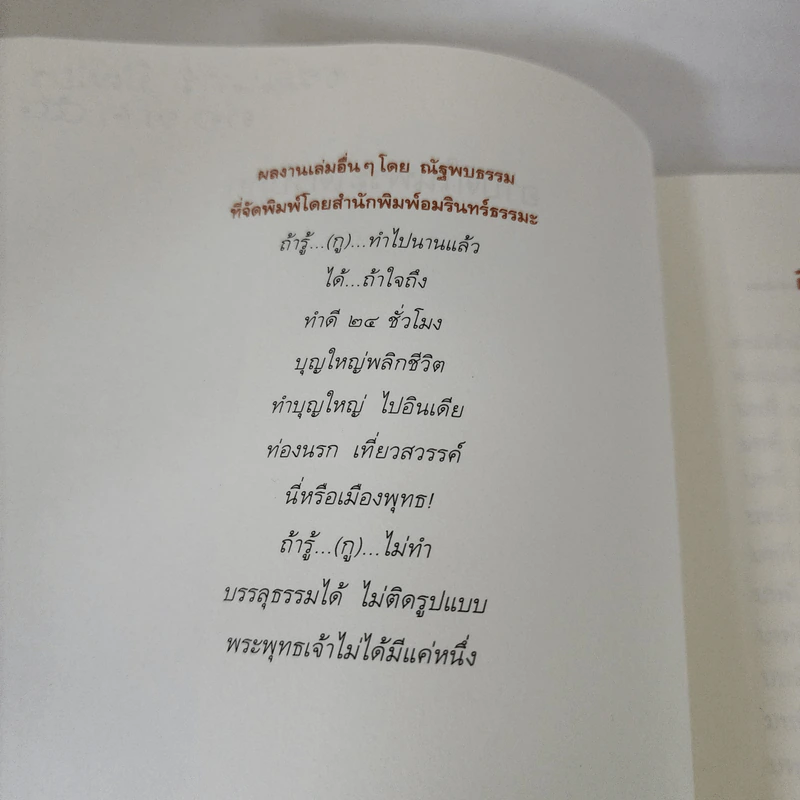 ผลงานเล่มอื่นๆ โดย ณัฐพบธรรม
ที่จัดพิมพ์โดยสำนักพิมพ์อมรินทร์ธรรมะ
ถ้ารู้...(กู)...ทำไปนานแล้ว
ได้...ถ้าใจถึง
ทำดี ๒๔ ชั่วโมง
บุญใหญ่พลิกชีวิต
ทำบุญใหญ่ ไปอินเดีย
ท่องนรก เที่ยวสวรรค์
นี่หรือเมืองพุทธ!
ถ้ารู้...(กู)...ไม่ทำ
บรรลุธรรมได้ ไม่ติดรูปแบบ
พระพุทธเจ้าไม่ได้มีแค่หนึ่ง